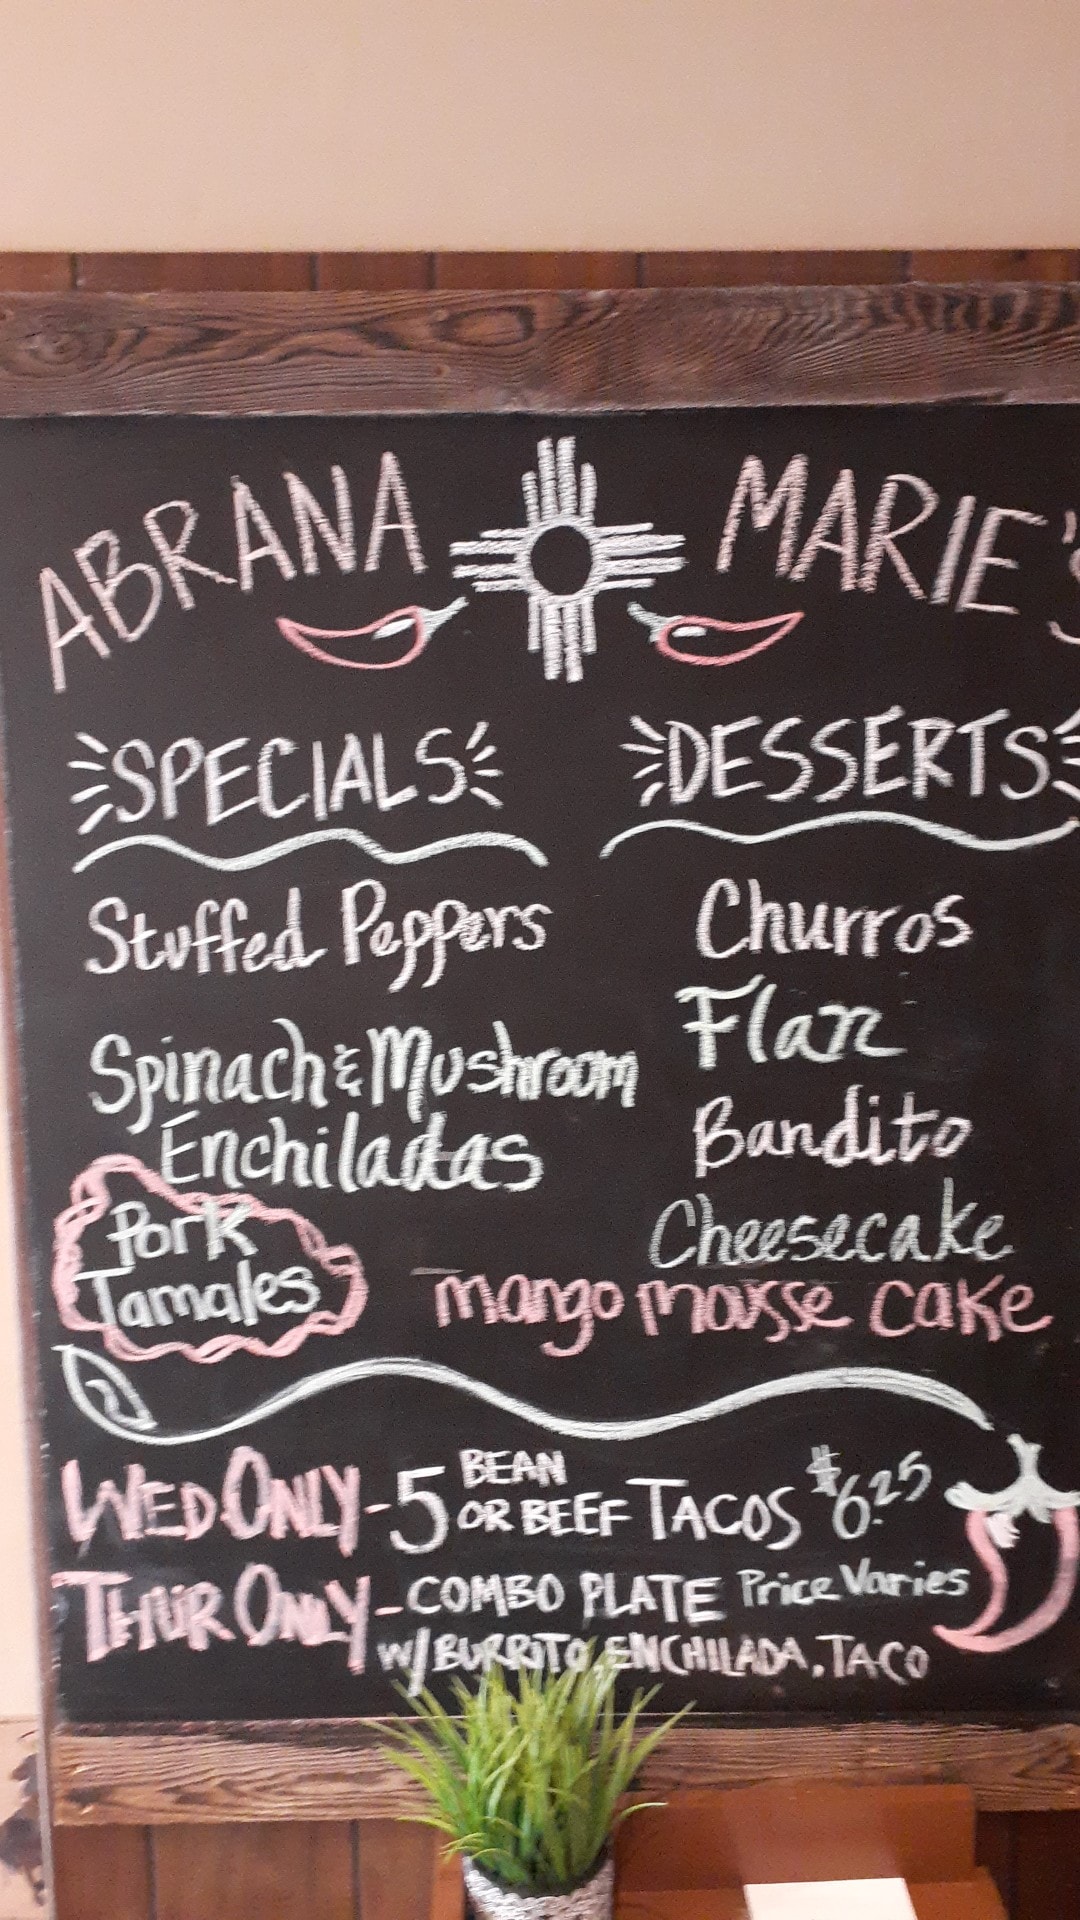 ABRANA MARIE'S
SPECIALS
Stuffed Peppers
Spinach & Mushroom
Enchiladas
Pork
Tamales
DESSERTS
Churros
Flan
Bandito
Cheesecake
mango mousse cake
WED ONLY - 5 BEAN OR BEEF TACOS $6.25
THUR ONLY - COMBO PLATE Price Varies
W/ BURRITO, ENCHILADA, TACO